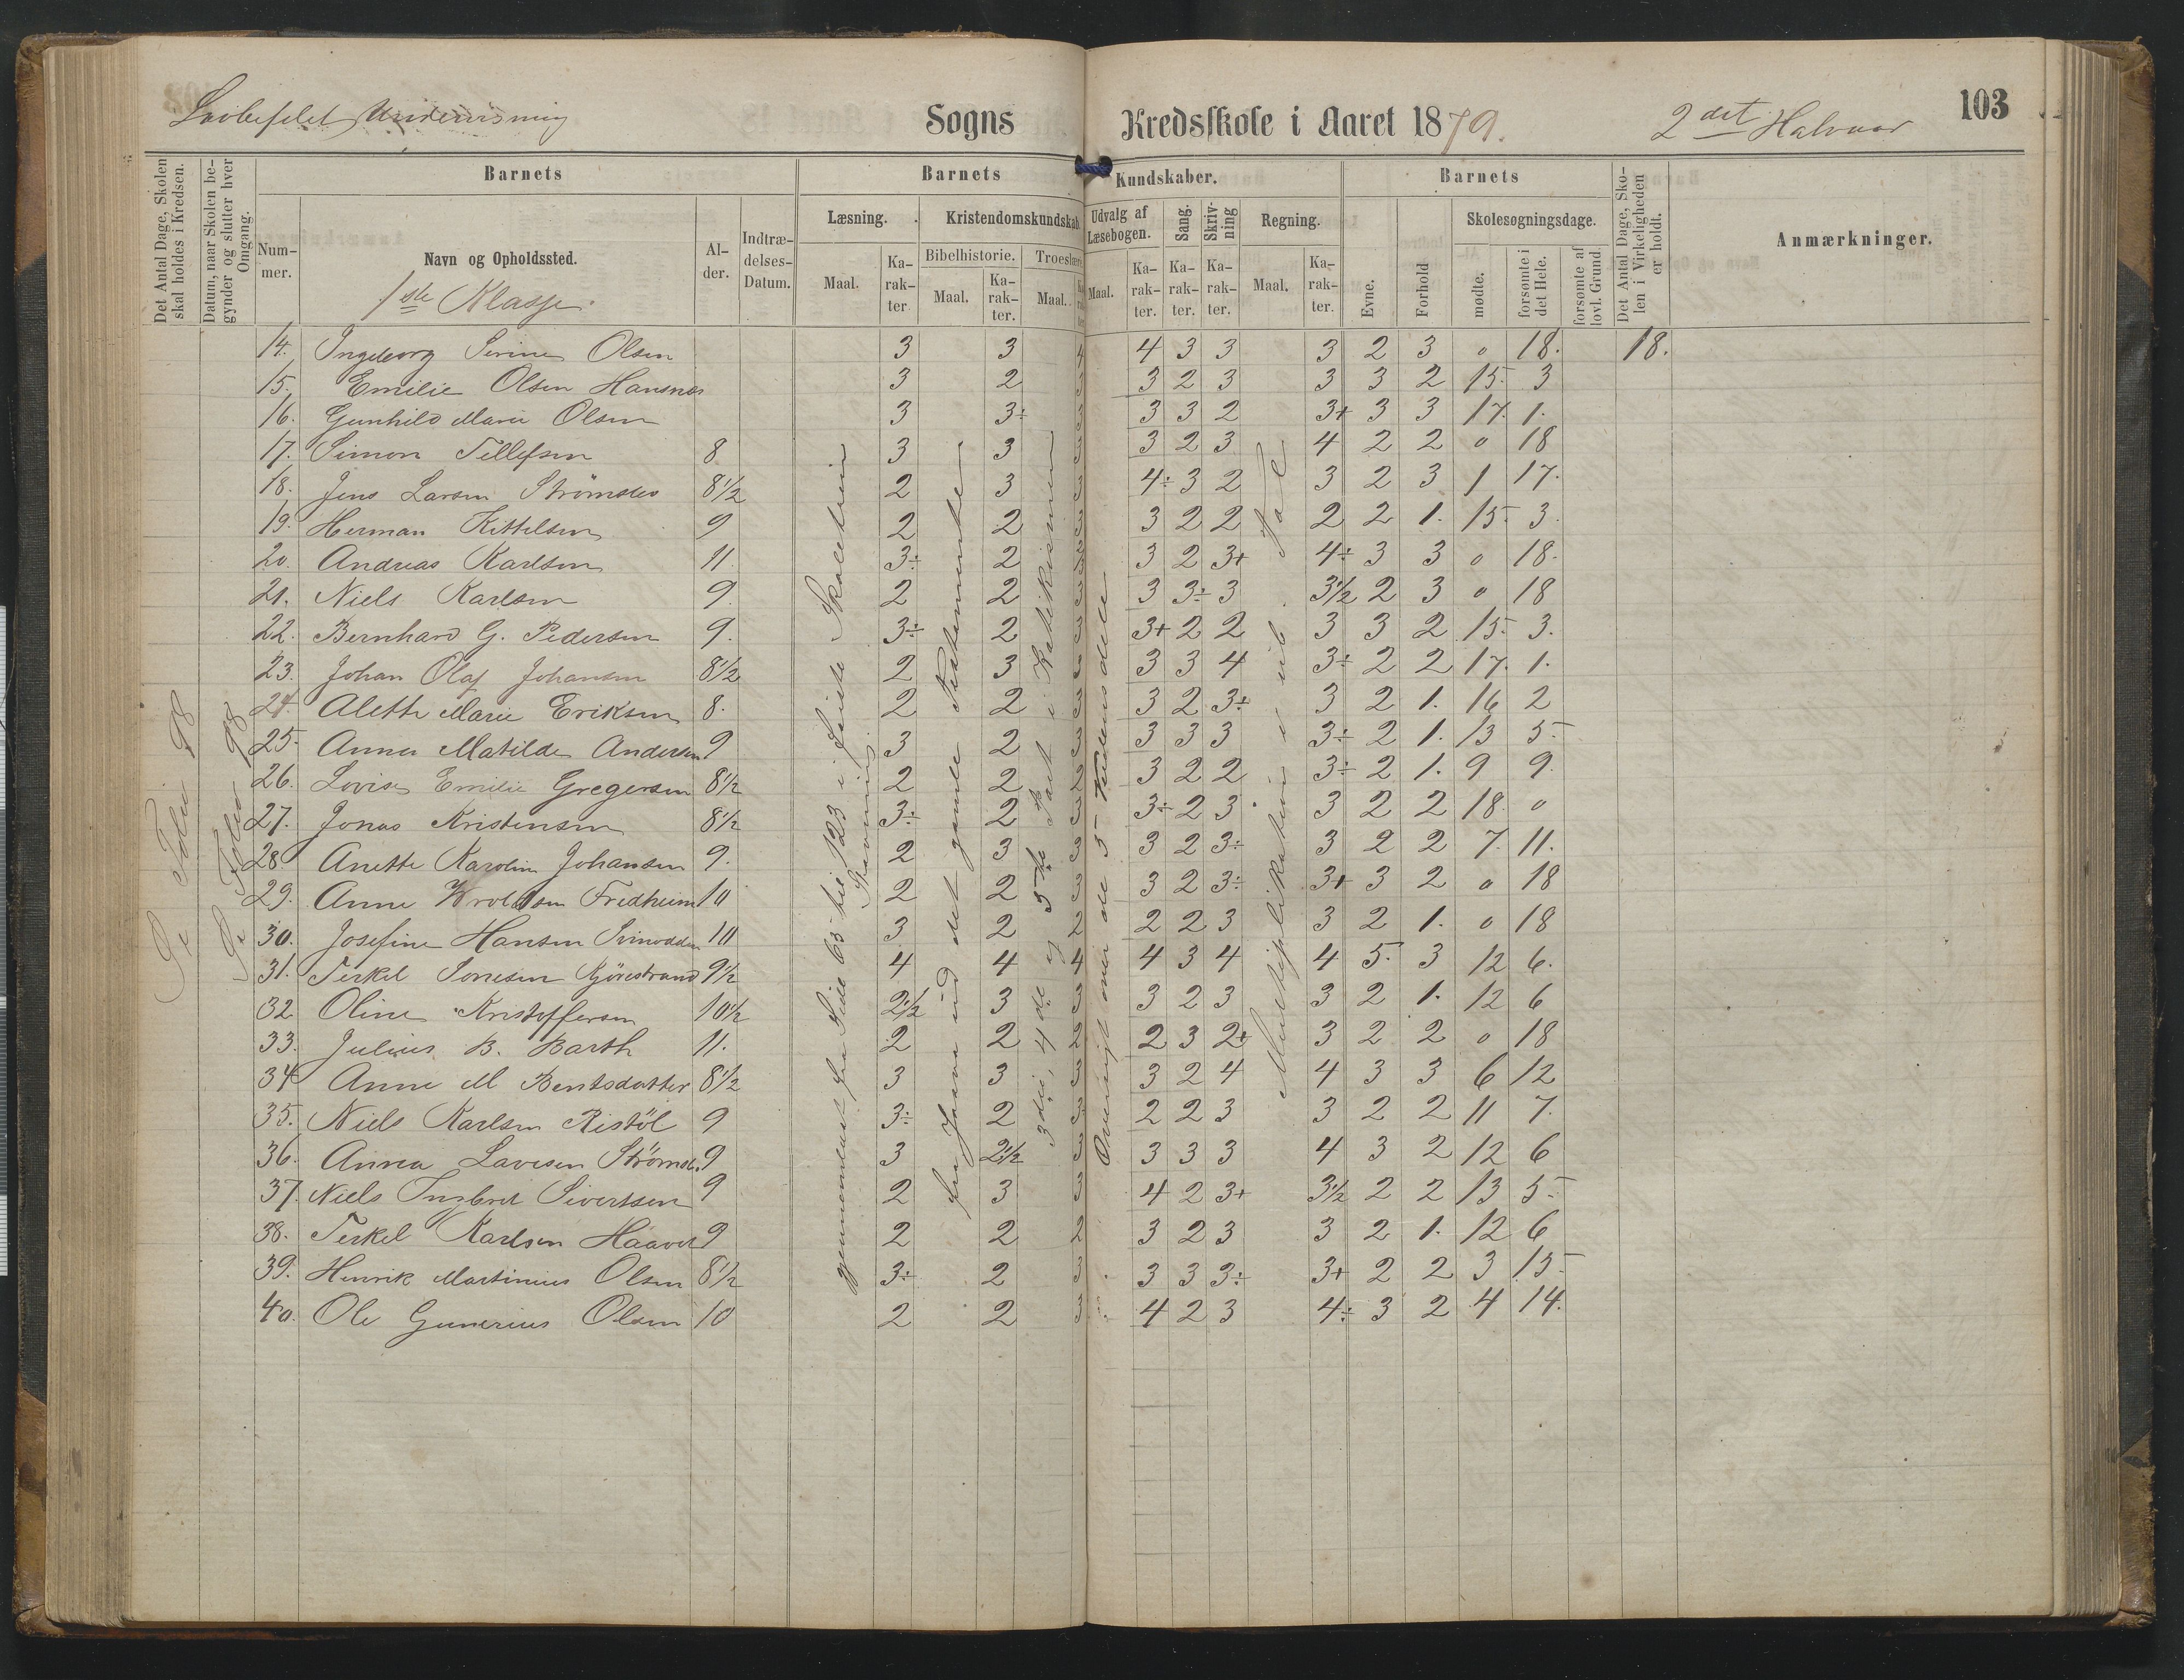 Lovbefalet Undervisning Sogns Kredsskole i Aaret 1879. 2det Halvaar 103
Det Antal Dage, Skolen skal holdes i Kredsen.
Datum, naar Skolen begynder og slutter hver Omgang.
Barnets
Nummer.
Navn og Opholdssted.
1ste Klasse.
Alder.
Indtrædelses-Datum.
Barnets Kundskaber.
Læsning. Kristendomskundskab. Udvalg af Læsebogen. Sang. Skrivning Regning.
Bibelhistorie. Troeslære.
Maal. Karakter Maal. Karakter. Maal. Karakter Maal. Karakter. Karakter. Karakter. Maal. Karakter.
Barnets
Evne. Forhold
Skolesøgningsdage.
mødte. forsømte i det Hele. forsømte af lovl. Grund.
Det Antal Dage, Skolen i Virkeligheden er holdt.
Anmærkninger.
14. Ingeborg Serine Olsen 3 3 4 4 3 3 3 2 3 0 18. 18.
15. Emilie Olsen Hansnes 3 2 3 3 2 3 3 3 2 15. 3
16. Gunhild Marie Olsen 3 3÷ 3 3 3 2 3+ 3 3 17. 1.
17. Simon Tellefsen 8 3 3 3 3 2 3 4 2 2 0 18
18. Jens Larsen 8½ 2 3 3 4÷ 3 2 3 2 3 1 17.
19. Herman Kittelsen 9 2 2 3 3 2 2 2 2 1. 15. 3.
20. Andreas Karlsen 11 3÷ 2 3 3 2 3+ 4÷ 3 3 0 18.
21. Niels Karlsen 9. 2 2 3 3 3÷ 3 3½ 2 3 0 18
22. Bernhard G. Pedersen 9. 3÷ 2 3 3+ 2 2 3 3 2 15. 3.
23. Johan Olaf Johansen 8½ 2 3 3 3 3 4 3÷ 2 2 17. 1.
24. Alette Marie Eriksen 8. 2 2 3 3 2 3÷ 3 2 1. 16 2
25. Anna Matilde Andersen 9 3 2 3 3 3 3 3÷ 2 1. 13 5
26. Lovise Emilie Gregersen 8½ 2 2 2 3 2 2 3÷ 2 1. 9 9.
27. Jonas Kristensen 8½ 3÷ 2 3 3÷ 2 3 3 2 2 18. 0
28 Anette Karoline Johansen 9. 2 3 3 3 2 3÷ 3 2 2 7. 11.
29. Anne Wroldsen Fredheim 10 2 2 3 3 2 3÷ 3+ 3 2 0 18
30. Josefine Hansen Svinodden 10 3 2 2 2 2 3 3 2 1. 0 18
31. Terkel Sonesen Gjörestrand 9½ 4 4 4 4 3 4 4 5. 3 12 6.
32. Oline Kristoffersen 10½ 2½ 3 3 3 2 3 3 2 1. 12 6
33. Julius B. Barth 11. 2 2 2 2 3 2+ 3 2 2 0 18
34 Anne M Bentsdatter 8½ 3 3 3 3 2 4 4 3 3 6 12
35. Niels Karlsen Ristöl 9 3÷ 2 3 2 2 3 3 2 2 11 7.
36. Anna Lavesen Strömsb. 9 3 2½ 3 3 3 3 4 3 2 12 6
37. Niels Ingbret Sivertsen 9 2 3 3 4 2 3+ 3½ 2 2 13 5
38. Terkel Karlsen Haavet 9 2 2 2 3 2 3 3 2 1. 12 6
39. Henrik Martinius Olsen 8½ 3÷ 2 3 3 3 3÷ 3+ 2 2 3 15
40. Ole Gunerius Olsen 10 2 2 3 4 2 3 4÷ 3 2 4 14.
Se Folio 98
Se Folio 98
gjennemlæst fra Side 65 til 123 i Læsebo
fra Josva ud det gamle Testamente
3die, 4de og 5te Part i Katekismen
Oversigt over de 5 Verdensdele
Multiplikation i ub. Tal